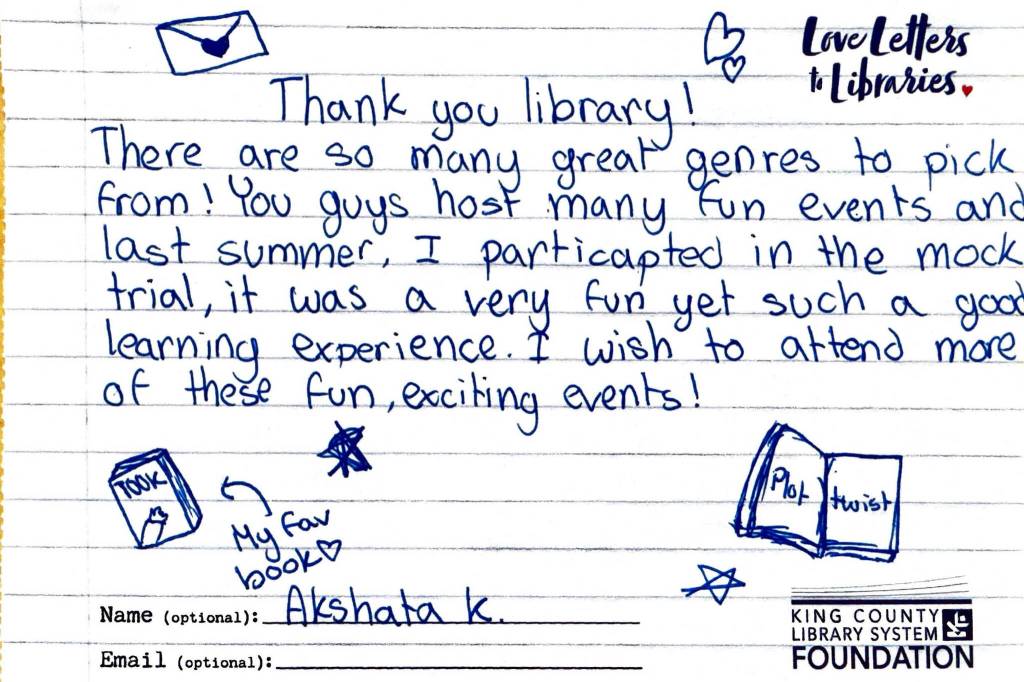 Love Letters
to Libraries.
Thank you library!
There are so many great genres to pick
from! You guys host many fun events and
last summer, I particapted in the mock
trial, it was a very fun yet such a good
learning experience. I wish to attend more
of these fun, exciting events!
TOOK
My fav
book
Plot twist
Name (optional): Akshata K.
Email (optional):
KING COUNTY
LIBRARY SYSTEM
FOUNDATION